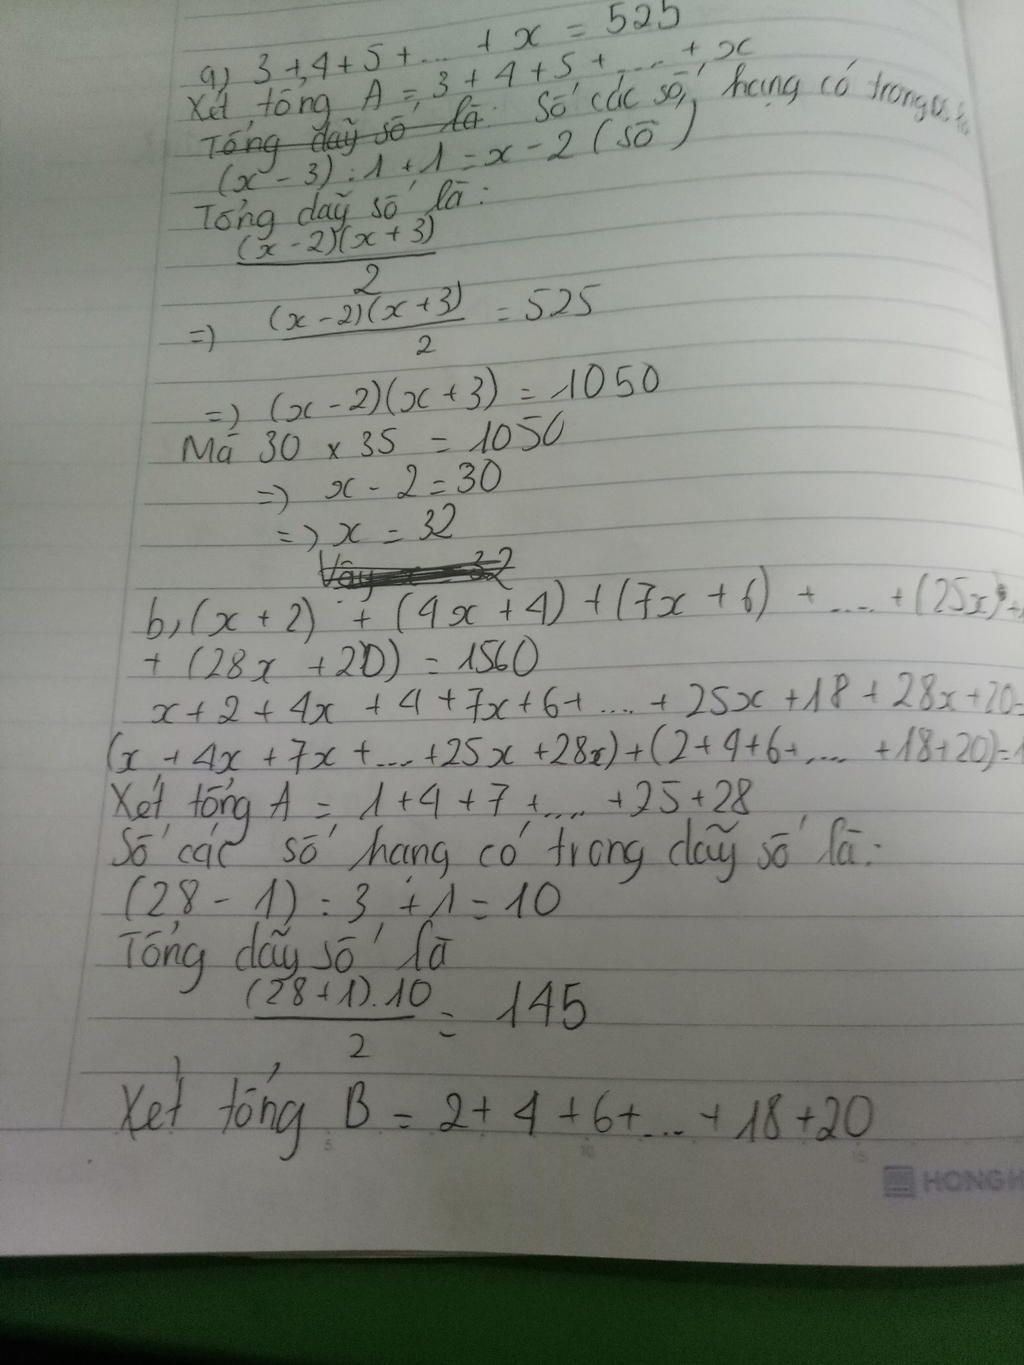 a, 3 + 4 + 5 + .... + x = 525
Xét tổng A = 3 + 4 + 5 + .... + x
Tổng dãy số là: Số các số hạng có trong
(x - 3) : 1 + 1 = x - 2 (số)
Tổng dãy số là:
(x - 2)(x + 3)
2
=> (x - 2)(x + 3) = 525
2
=> (x - 2)(x + 3) = 1050
Mà 30 x 35 = 1050
=> x - 2 = 30
=> x = 32
Vậy x = 32
b, (x + 2) + (4x + 4) + (7x + 6) + .... + (25x +
+ (28x + 20) = 1560
x + 2 + 4x + 4 + 7x + 6 + .... + 25x + 18 + 28x + 20 =
(x + 4x + 7x + .... + 25x + 28x) + (2 + 4 + 6 + .... + 18 + 20) = 1
Xét tổng A = 1 + 4 + 7 + .... + 25 + 28
Số các số hạng có trong dãy số là:
(28 - 1) : 3 + 1 = 10
Tổng dãy số là
(28 + 1).10 = 145
2
Xét tổng B = 2 + 4 + 6 + .... + 18 + 20
5 10 15
HONG H